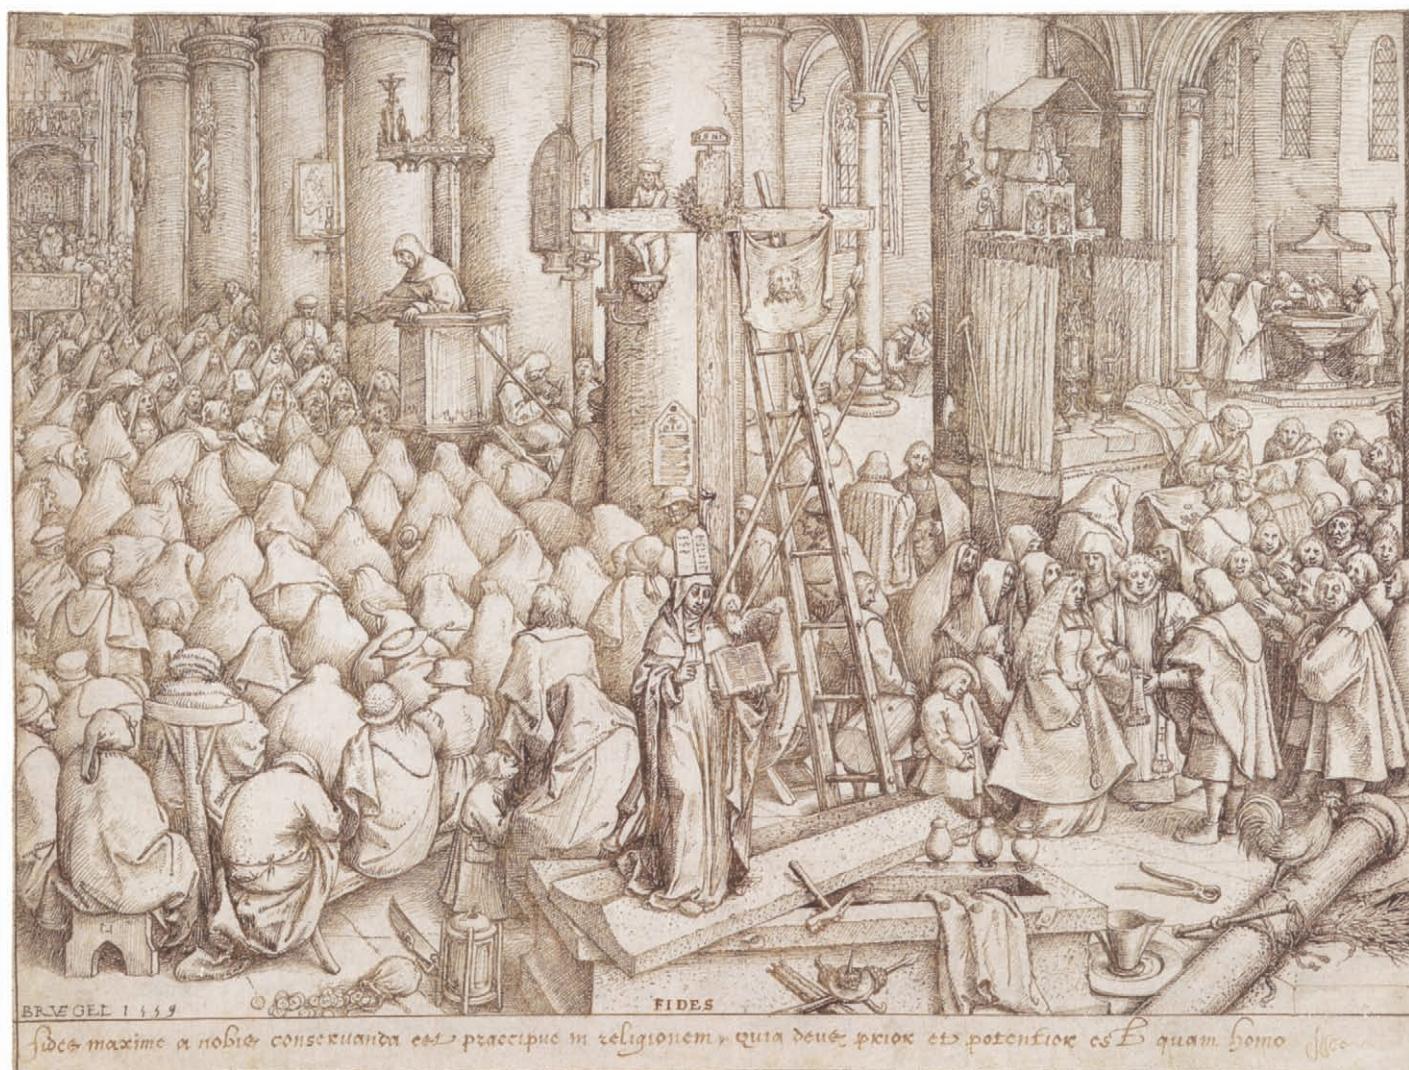 BRVEGEL 1559
FIDES
fides maxime a nobis conseruanda est praecipue in religionem, quia deus prior et potentior est quam homo